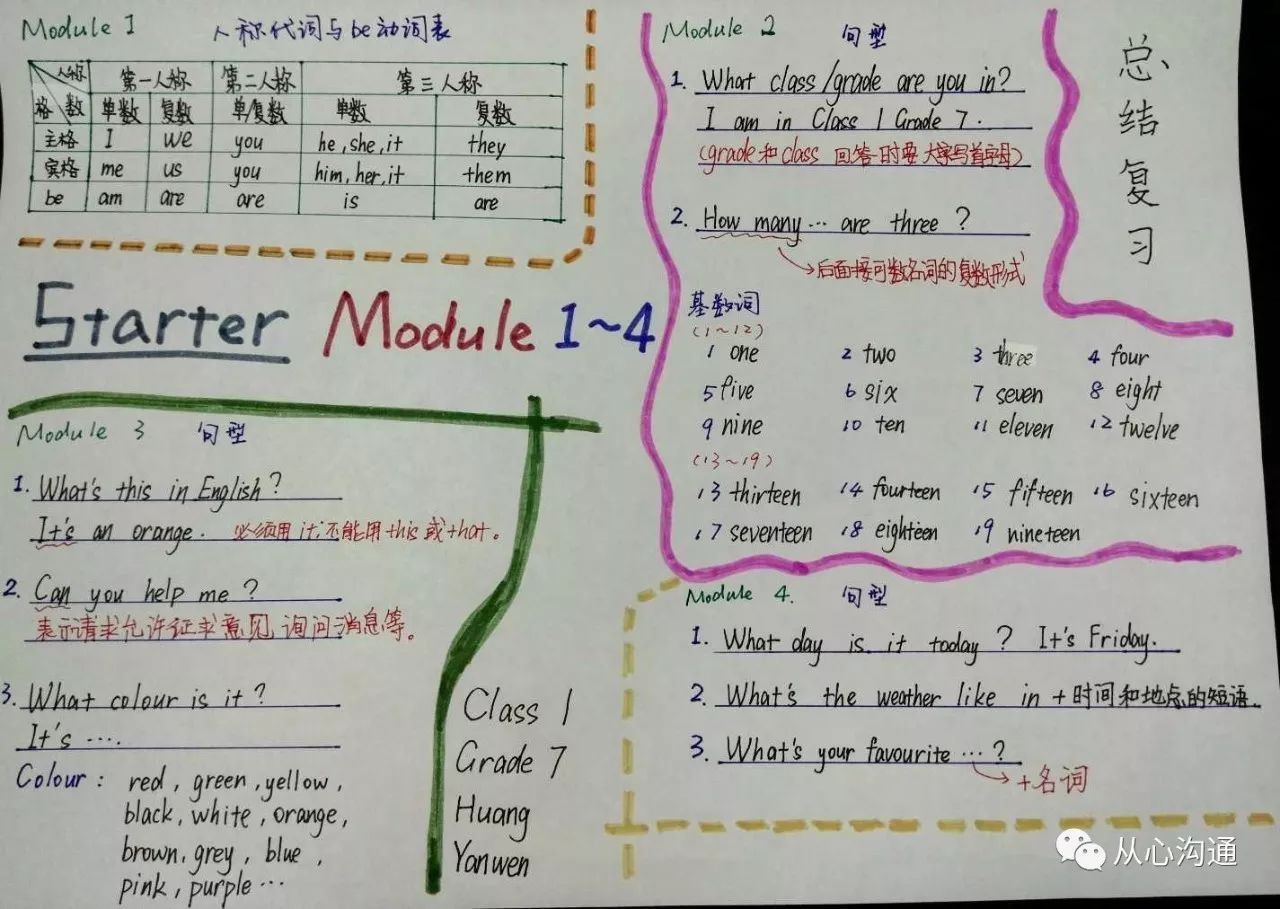 Module 1 人称代词与be动词表
人称 第一人称 第二人称 第三人称
格 数 单数 复数 单/复数 单数 复数
主格 I we you he, she, it they
宾格 me us you him, her, it them
be am are are is are
Module 2 句型
1. What class/grade are you in?
I am in Class 1 Grade 7.
(grade和class 回答时要大写首字母)
2. How many … are three ?
后面接可数名词的复数形式
基数词
(1~12)
1 one 2 two 3 three 4 four
5 five 6 six 7 seven 8 eight
9 nine 10 ten 11 eleven 12 twelve
(13~19)
13 thirteen 14 fourteen 15 fifteen 16 sixteen
17 seventeen 18 eighteen 19 nineteen
总结复习
Starter Module 1~4
Module 3 句型
1. What's this in English?
It's an orange. 必须用it,不能用this或that。
2. Can you help me ?
表示请求允许征求意见,询问消息等。
3. What colour is it ?
It's ….
Colour: red, green, yellow,
black, white, orange,
brown, grey, blue,
pink, purple…
Class 1
Grade 7
Huang
Yanwen
Module 4. 句型
1. What day is it today ? It's Friday.
2. What's the weather like in + 时间和地点的短语.
3. What's your favourite …?
+名词
从心沟通